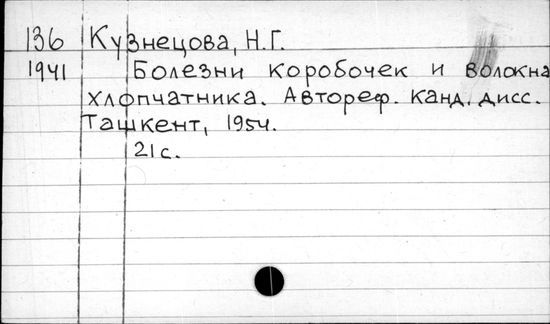 136 Кузнецова, Н.Г.
1941 Болезни коробочек и волокна
хлопчатника. Автореф. канд. дисс.
Ташкент, 1954.
21 с.